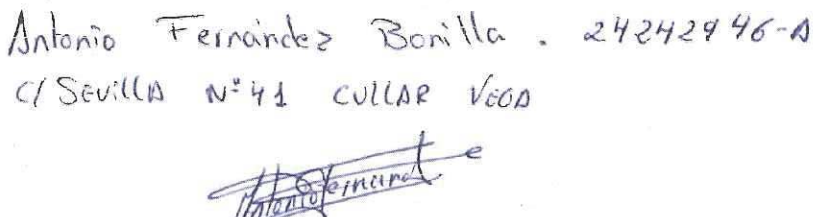 Antonio Fernández Bonilla. 24242946-A
C/ Sevilla Nº 41 CULLAR VEGA
Antonio Fernand